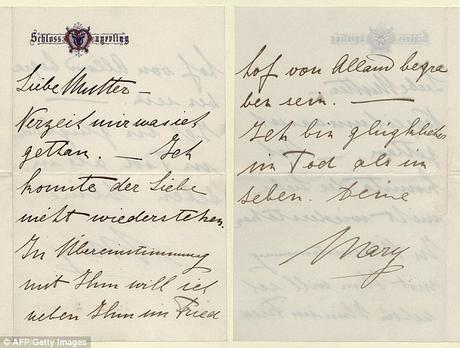 Schloss Mayerling
Liebe Mutter –
Verzeit mir was ich
gethan. – Ich
konnte der Liebe
nicht wiederstehen.
In Übereinstimmung
mit Ihm will ich
neben Ihm im Fried
hof von Alland begra
ben sein. —
Ich bin glücklicher
im Tod als im
Leben. Deine
Mary
© AFP/Getty Images